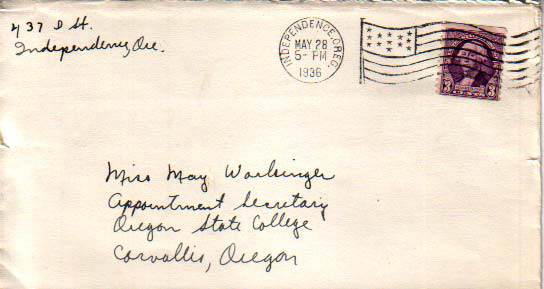 437 D St.
Independence, Ore.
INDEPENDENCE, OREG.
MAY 28
5 - PM
1936
3 3
Miss May Workinger
Appointment Secretary
Oregon State College
Corvallis, Oregon